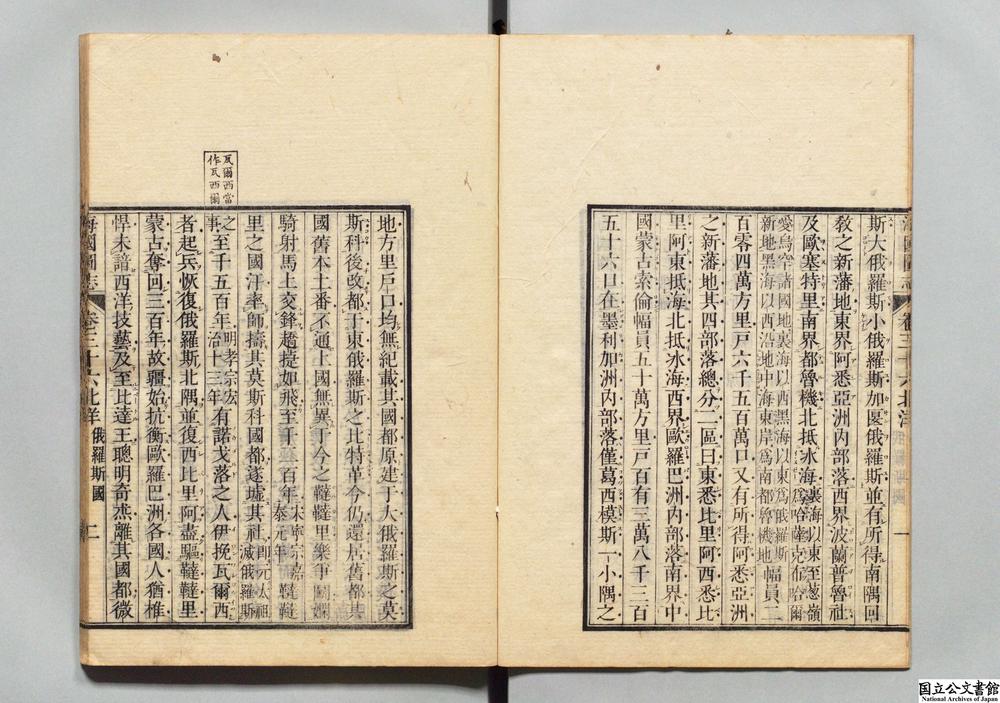 斯大俄羅斯小俄羅斯加匽俄羅斯並有所得南隅回
敎之新藩地東界阿悉亞洲內部落西界波蘭普魯社
及歐塞特里南界都魯機北抵冰海裏海以東至葱嶺
愛烏罕諸國地裏海以西黑海以東爲俄羅斯
新地黑海以西沿地中海東岸爲南都魯機地幅員二
百零四萬方里戸六千五百萬口又有所得阿悉亞洲
之新藩地其四部落總分二區曰東悉比里阿西悉比
里阿東抵海北抵冰海西界歐羅巴洲內部落南界中
國蒙古索倫幅員五十萬方里戸百有三萬八千三百
五十六口在墨利加洲內部落僅葛西模斯一小隅之
海國圖志
卷三十六北洋
一
地方里戸口均無紀載其國都原建于大俄羅斯之莫
斯科後改都于東俄羅斯之比特革今仍還居舊都其
國舊本土番不通上國無異于今之韃韃里樂爭鬭嫻
騎射馬上交鋒趫捷如飛至千二百年宋寧宗嘉
泰元年韃韃
里之國汗率師擣其莫斯科國都遂墟其社即元太祖
滅俄羅斯
之
事至千五百年明孝宗弘
治十三年有諾戈落之人伊挽瓦爾西
者起兵恢復俄羅斯北隅並復西比里阿盡驅韃韃里
蒙古奪回三百年故疆始抗衡歐羅巴洲各國人猶椎
悍未諳西洋技藝及至比達王聰明奇杰離其國都微
海國圖志
卷三十六北洋
俄羅斯國
二
瓦爾西當
作瓦西爾
国立公文書館
National Archives of Japan